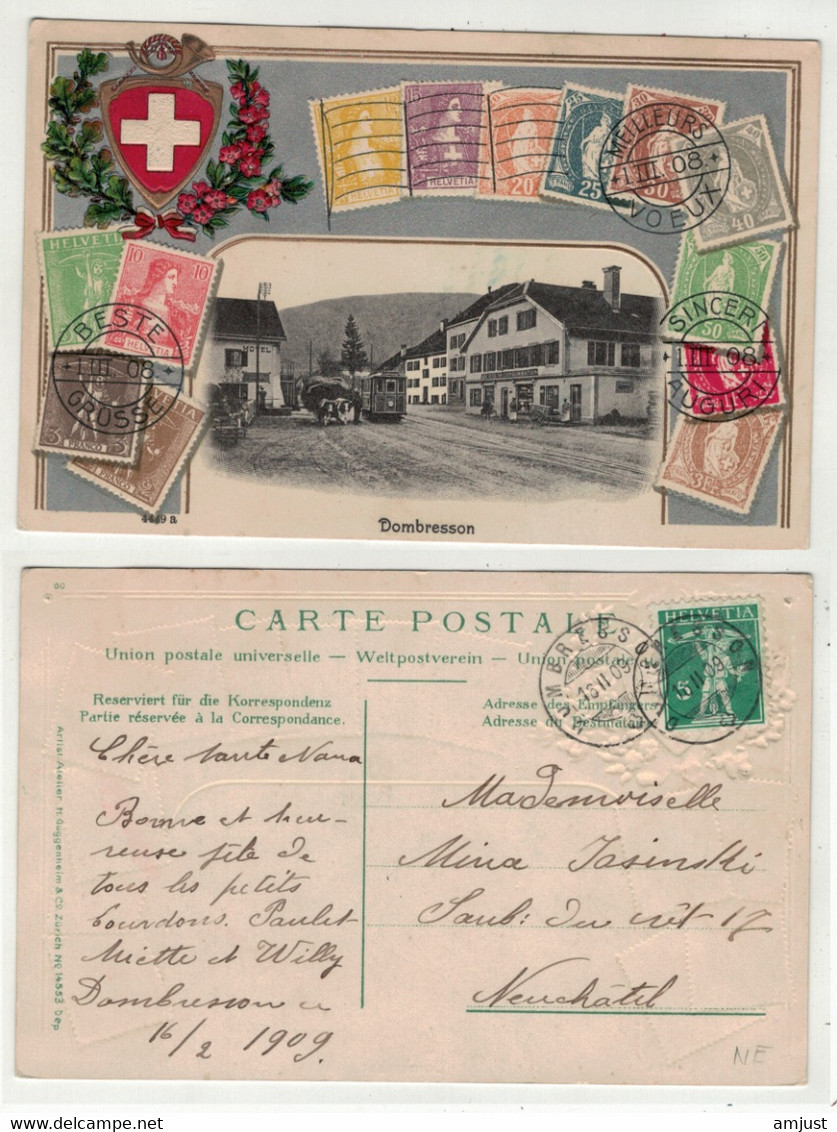 15
HELVETIA
20
25
30
40
MEILLEURS
1.III.08
VOEUX
HELVETIA
10 10
HELVETIA
BESTE
1.III.08
GRÜSSE
3 FRANCO 3
50
SINCERI
1.III.08
AUGURI
3
HOTEL
4449 a
Dombresson
60
CARTE POSTALE
Union postale universelle — Weltpostverein — Union postale
Reserviert für die Korrespondenz
Partie réservée à la Correspondance.
Adresse des Empfängers
Adresse du Destinataire
HELVETIA
5
DOMBRESSON
16.II.09
DOMBRESSON
16.II.09
Artist. Atelier H. Guggenheim & Co. Zürich No 14553 Dep.
Chère tante Nana
Bonne et heu-
reuse fête de
tous les petits
bourdons. Paulet
Miette et Willy
Dombresson le
16/2 1909.
Mademoiselle
Mina Jasinski
Faub: du Crêt 17
Neuchâtel
NE
HELVETIA
FRANCO
www.delcampe.net
amjust